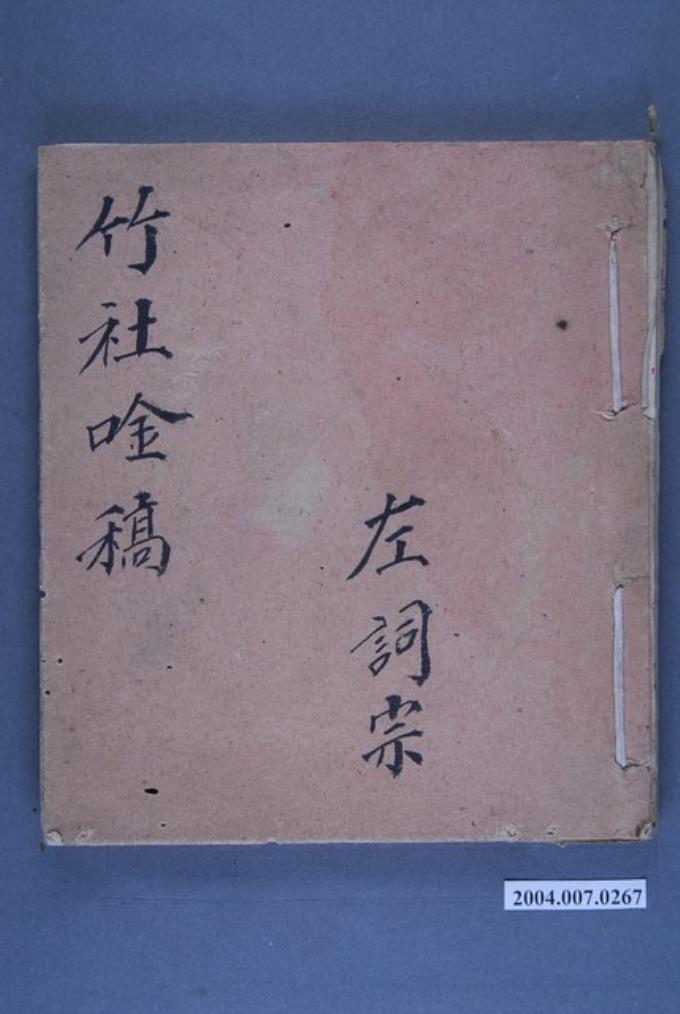 左詞宗
竹社唫稿
2004.007.0267